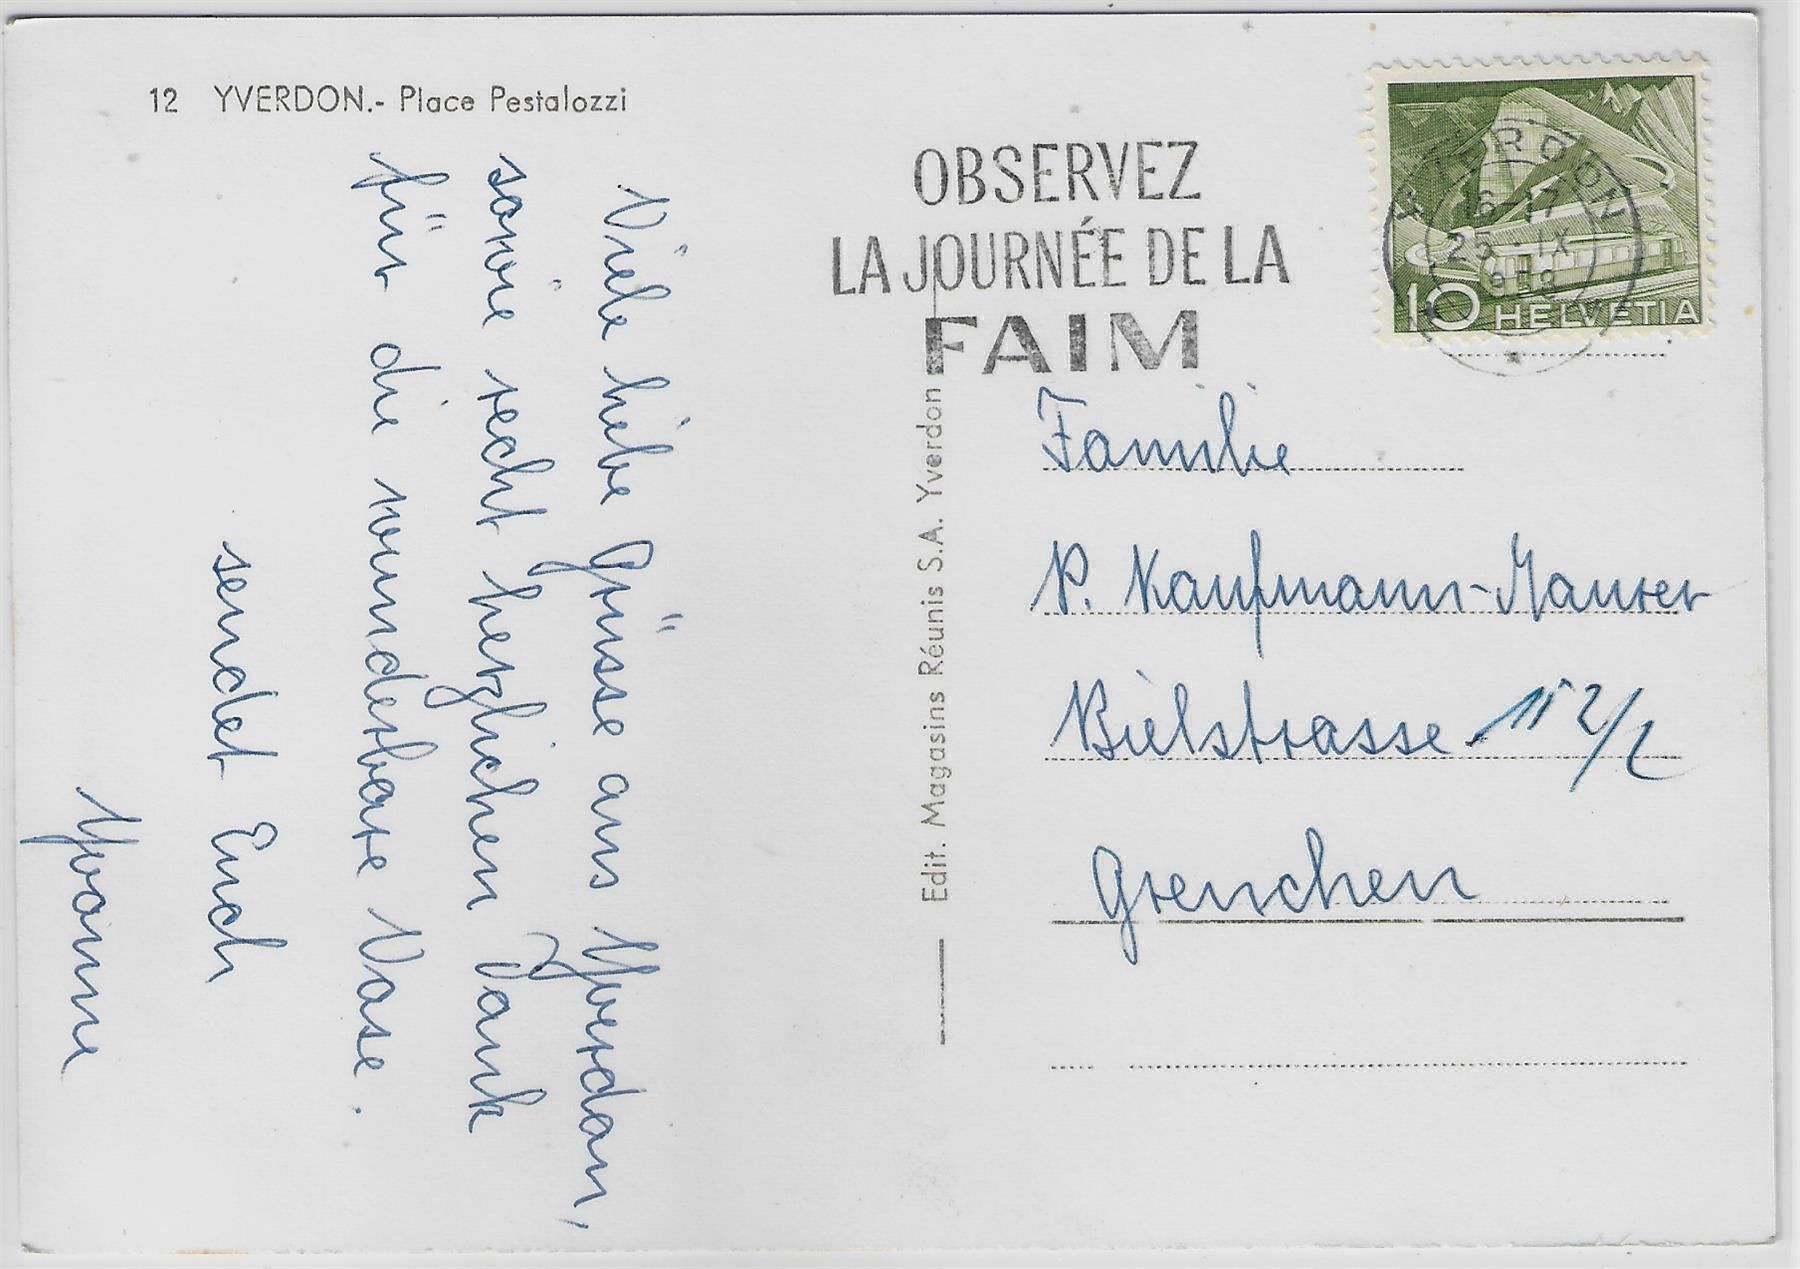 12 YVERDON.- Place Pestalozzi
Viele liebe Grüsse aus Yverdon,
sowie recht herzlichen Dank
für die wunderbare Vase.
sendet Euch
Yvonne
Edit. Magasins Réunis S.A. Yverdon
OBSERVEZ
LA JOURNÉE DE LA
FAIM
YVERDON
16-17
25.-IX
10 HELVETIA
Familie
P. Kaufmann-Maurer
Bielstrasse
Grenchen